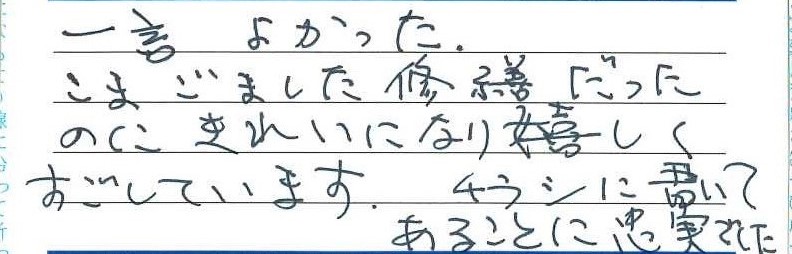 一言 よかった.
こまごました修繕だった
のにきれいになり嬉しく
すごしています. チラシに書いて
あることに忠実でした